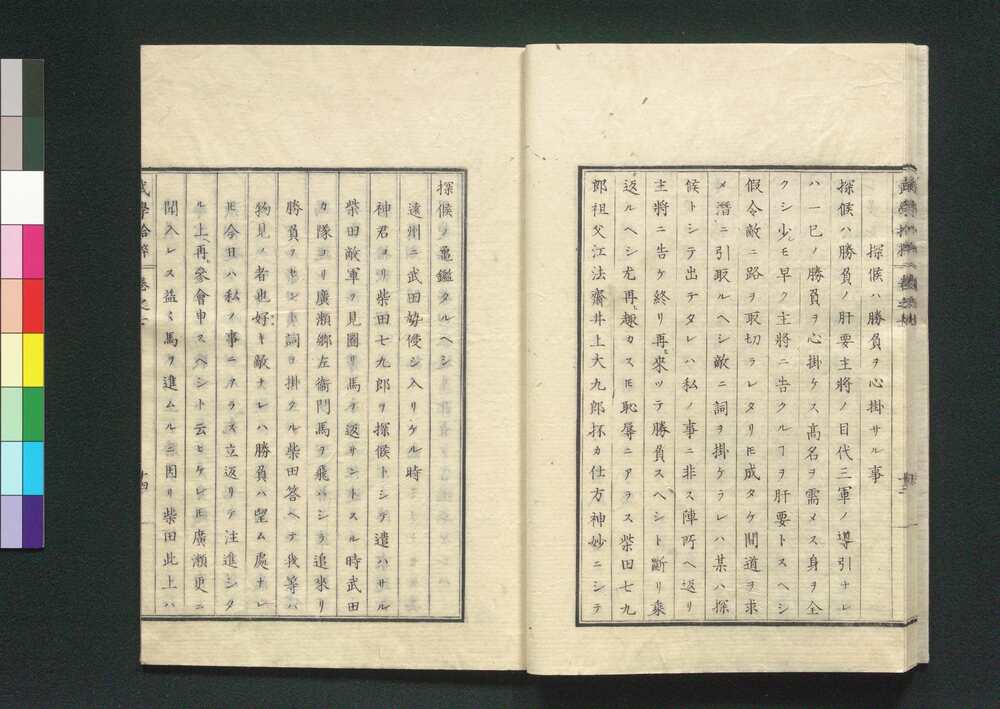 探候ハ勝負ヲ心掛サル事
探候ハ勝負ノ肝要主将ノ目代三軍ノ導引ナレ
ハ一己ノ勝負ヲ心掛ケス高名ヲ需メス身ヲ全
クシ少シモ早ク主将ニ告クルヿヲ肝要トスヘシ
假令敵ニ路ヲ取切ラレタリ𪜈成タケ間道ヲ求
メ潜ニ引取ルヘシ敵ニ詞ヲ掛ケラレハ某ハ探
候トシテ出テタレハ私ノ事ニ非ス陣所ヘ返リ
主将ニ告ケ終リ再ヒ来ツテ勝負スヘシト断リ乗
返ルヘシ尤再ヒ趣カス𪜈恥辱ニアラス柴田七九
郎祖父江法齋井上大九郎抔カ仕方神妙ニシテ
探候ノ亀鑑タルヘシ
遠州ニ武田勢侵シ入リケル時
神君ヨリ柴田七九郎ヲ探候トシテ遣ハサル
柴田敵軍ヲ見圍リ馬ヲ返サントスル時武田
カ隊ヨリ廣瀬郷左衞門馬ヲ飛ハシテ追来リ
勝負ヲセント詞ヲ掛クル柴田答ヘテ我等ハ
物見ノ者也好キ敵ナレハ勝負ハ望ム處ナレ
𪜈今日ハ私ノ事ニアラス立返リテ注進シタ
ル上再ヒ參會申スヘシト云ヒケレ𪜈廣瀬更ニ
聞入レス益々馬ヲ進ムルニ因リ柴田此上ハ
武學拾粹 巻之
十四